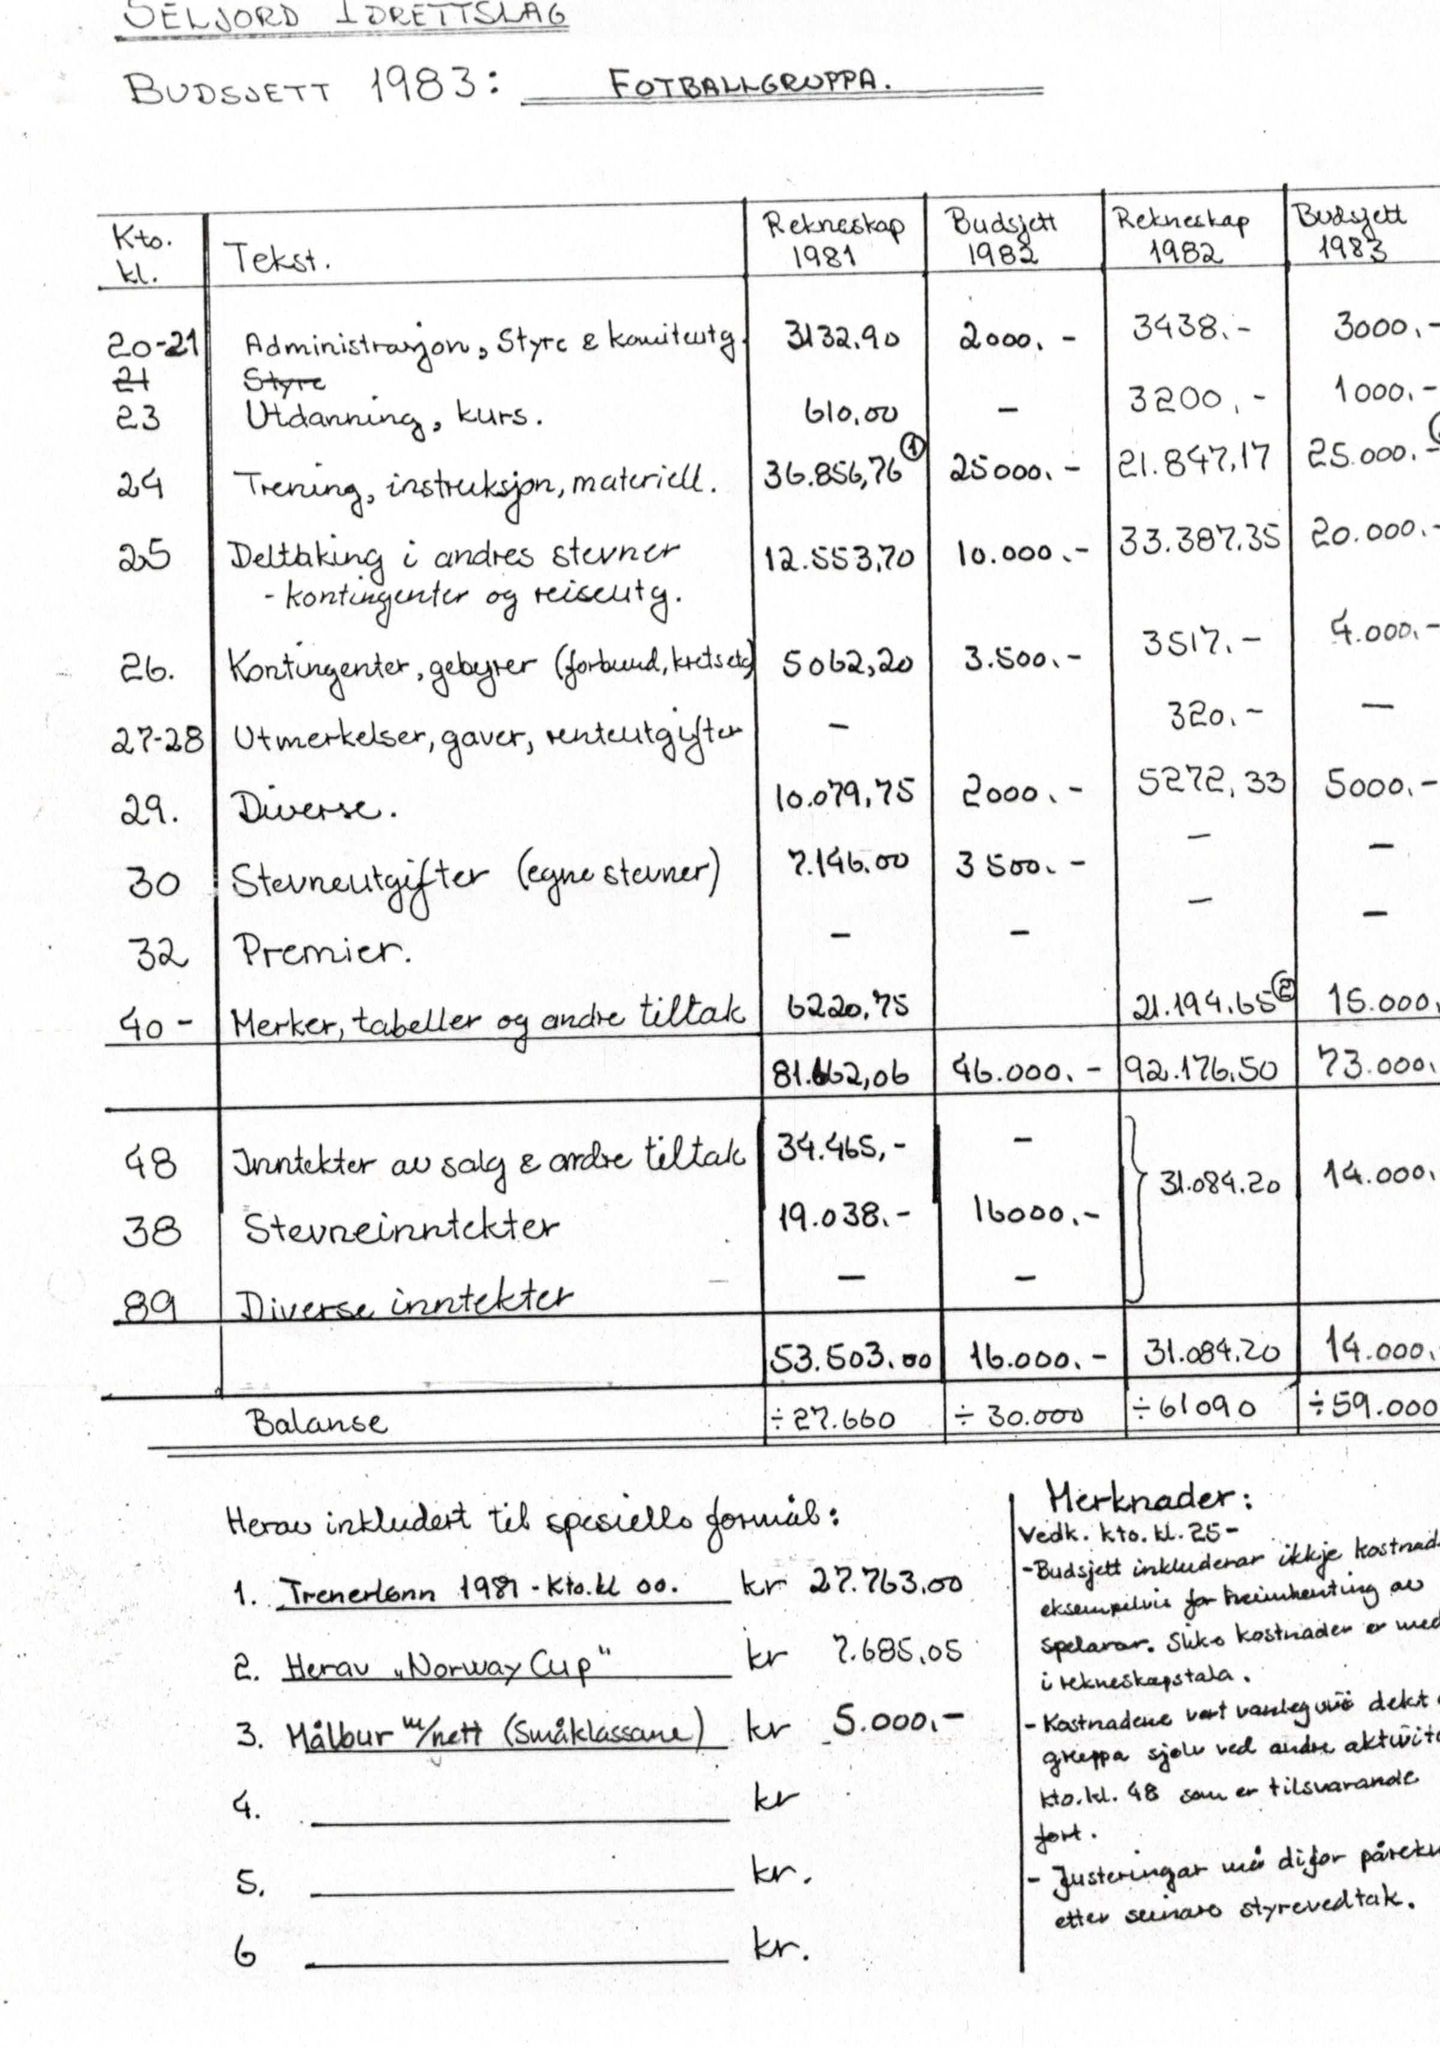 SELJORD IDRETTSLAG
BUDSJETT 1983: FOTBALLGRUPPA.
Kto. kl. Tekst. Rekneskap 1981 Budsjett 1982 Rekneskap 1982 Budsjett 1983
20-21 Administrasjon, Styre & komiteutg. 3132,90 2000.- 3438.- 3000.-
21 Styre
23 Utdanning, kurs. 610,00 - 3200,- 1000.-
24 Trening, instruksjon, materiell. 36.856,76 ① 25000.- 21.847,17 25.000.-
25 Deltaking i andres stevner 12.553,70 10.000.- 33.387.35 20.000.-
- kontingenter og reiseutg.
26. Kontingenter, gebyrer (forbund, krets etc) 5062,20 3.500.- 3517.- 4.000.-
27-28 Utmerkelser, gaver, renteutgifter - 320.- -
29. Diverse. 10.079,75 2000.- 5272,33 5000.-
30 Stevneutgifter (egne stevner) 7.146.00 3500.- - -
32 Premier. - - - -
40- Merker, tabeller og andre tiltak 6220,75 21.194.65 ② 15.000.
81.662,06 46.000.- 92.176,50 73.000.
48 Inntekter av salg & andre tiltak 34.465,- - 31.084.20 14.000.
38 Stevneinntekter 19.038.- 16000.-
89 Diverse inntekter - -
53.503.00 16.000.- 31.084.20 14.000.
Balanse ÷27.660 ÷30.000 ÷61090 ÷59.000
Herav inkludert til spesielle formål:
1. Trenerlønn 1981 - Kto.kl 00. kr 27.763,00
2. Herav "Norway Cup" kr 7.685,05
3. Målbur m/nett (Småklassane) kr 5.000.-
4. kr
5. kr.
6 kr.
Merknader:
Vedk. kto. kl. 25-
- Budsjett inkluderar ikkje kostnad
eksempelvis for heimhenting av
spelarar. Slike kostnader er med
i rekneskapstala.
- Kostnadene vert vanlegvis dekt
gruppa sjølv ved andre aktivit
kto.kl. 48 som er tilsvarande
ført.
- Justeringar må difor pårekn
etter seinare styrevedtak.